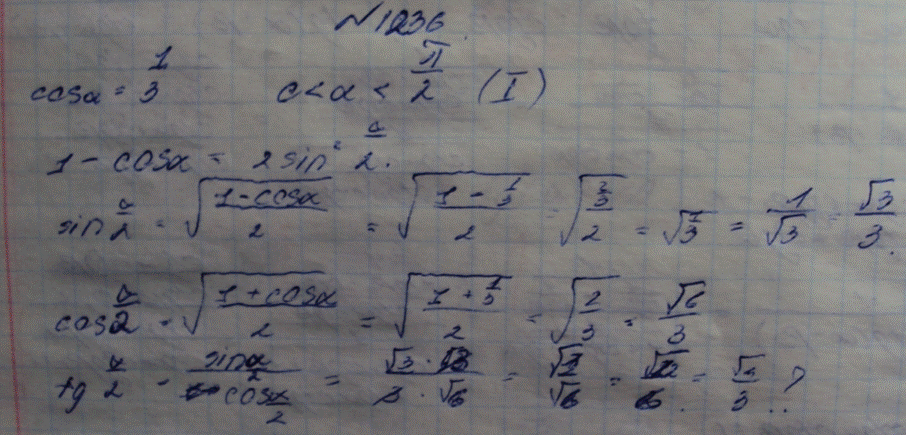 N1236
cosα = 1/3   0 < α < π/2 (I)
1 - cosα = 2 sin² α/2.
sin α/2 = √((1-cosα)/2) = √((1 - 1/3)/2) = √((2/3)/2) = √(1/3) = 1/√3 = √3/3.
cos α/2 = √((1+cosα)/2) = √((1 + 1/3)/2) = √(2/3) = √6/3
tg α/2 = (sin α/2)/(cos α/2) = (√3 · 3)/(3 · √6) = ?